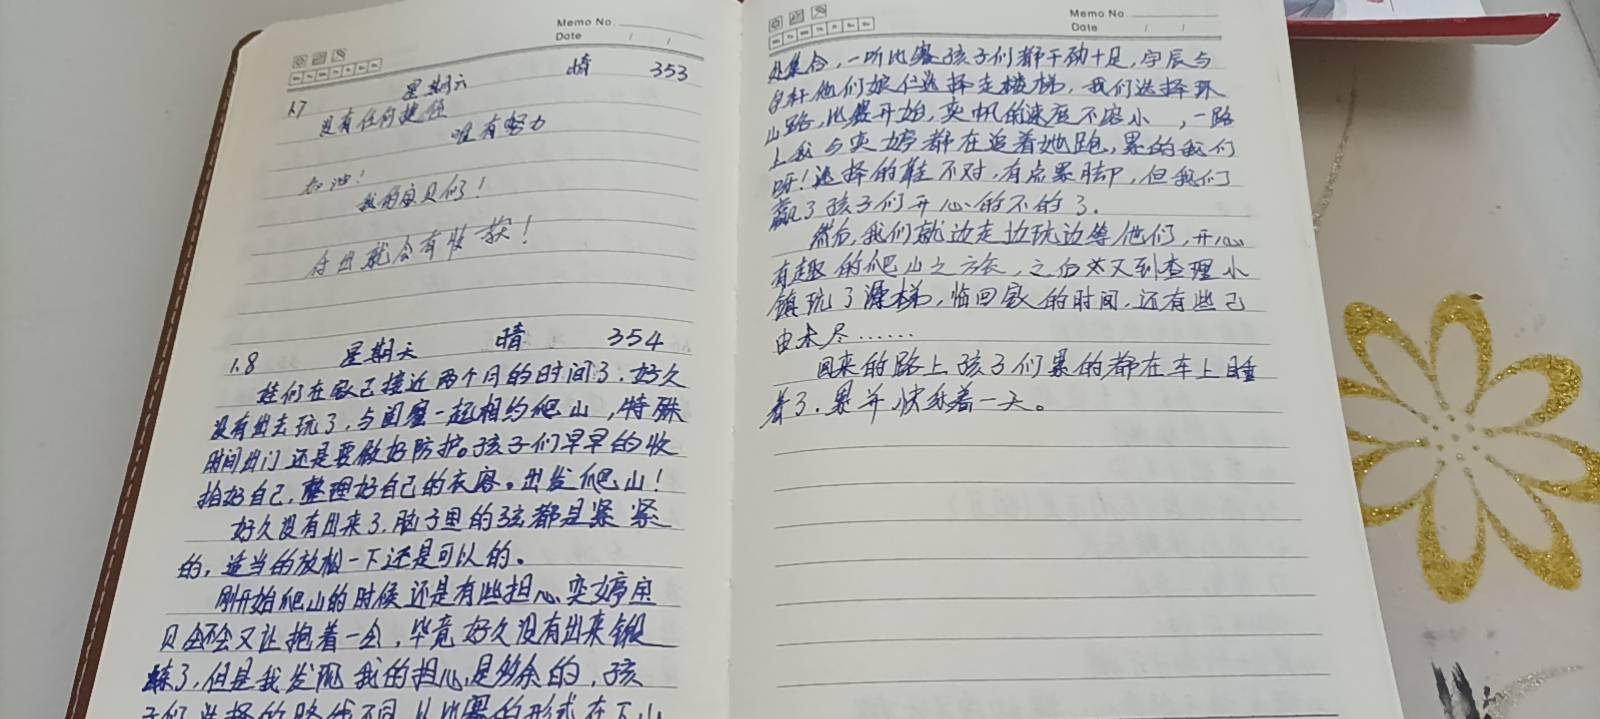 Memo No.
Date / /
1.7 星期六 晴 353
没有任何捷径
唯有努力
加油!
我的宝贝们!
付出就会有收获!
1.8 星期天 晴 354
娃们在家已接近两个月的时间了,好久
没有出去玩了,与闺蜜一起相约爬山,特殊
时间出门还是要做好防护。孩子们早早的收
拾好自己,整理好自己的衣容。出发爬山!
好久没有出来了,脑子里的弦都是紧紧
的,适当的放松一下还是可以的。
刚开始爬山的时候还是有些担心奕婷宝
贝会不会又让抱着一会,毕竟好久没有出来锻
炼了,但是我发现我的担心是多余的,孩
子们选择的路线不同,从比赛的形式在下山
Memo No.
Date / /
处集合,一听比赛孩子们都干劲十足,宇辰与
他们娘仨选择走楼梯,我们选择环
山路,比赛开始,奕帆的速度不容小 ,一路
上我与奕婷都在追着她跑,累的我们
呀!选择的鞋不对,有点累脚,但我们
赢了孩子们开心的不的了.
然后,我们就边走边玩边等他们,开心
有趣的爬山之旅,之后又到查理小
镇玩了滑梯,临回家的时间,还有些己
由未尽……
回来的路上孩子们累的都在车上睡
着了.累并快乐着一天。